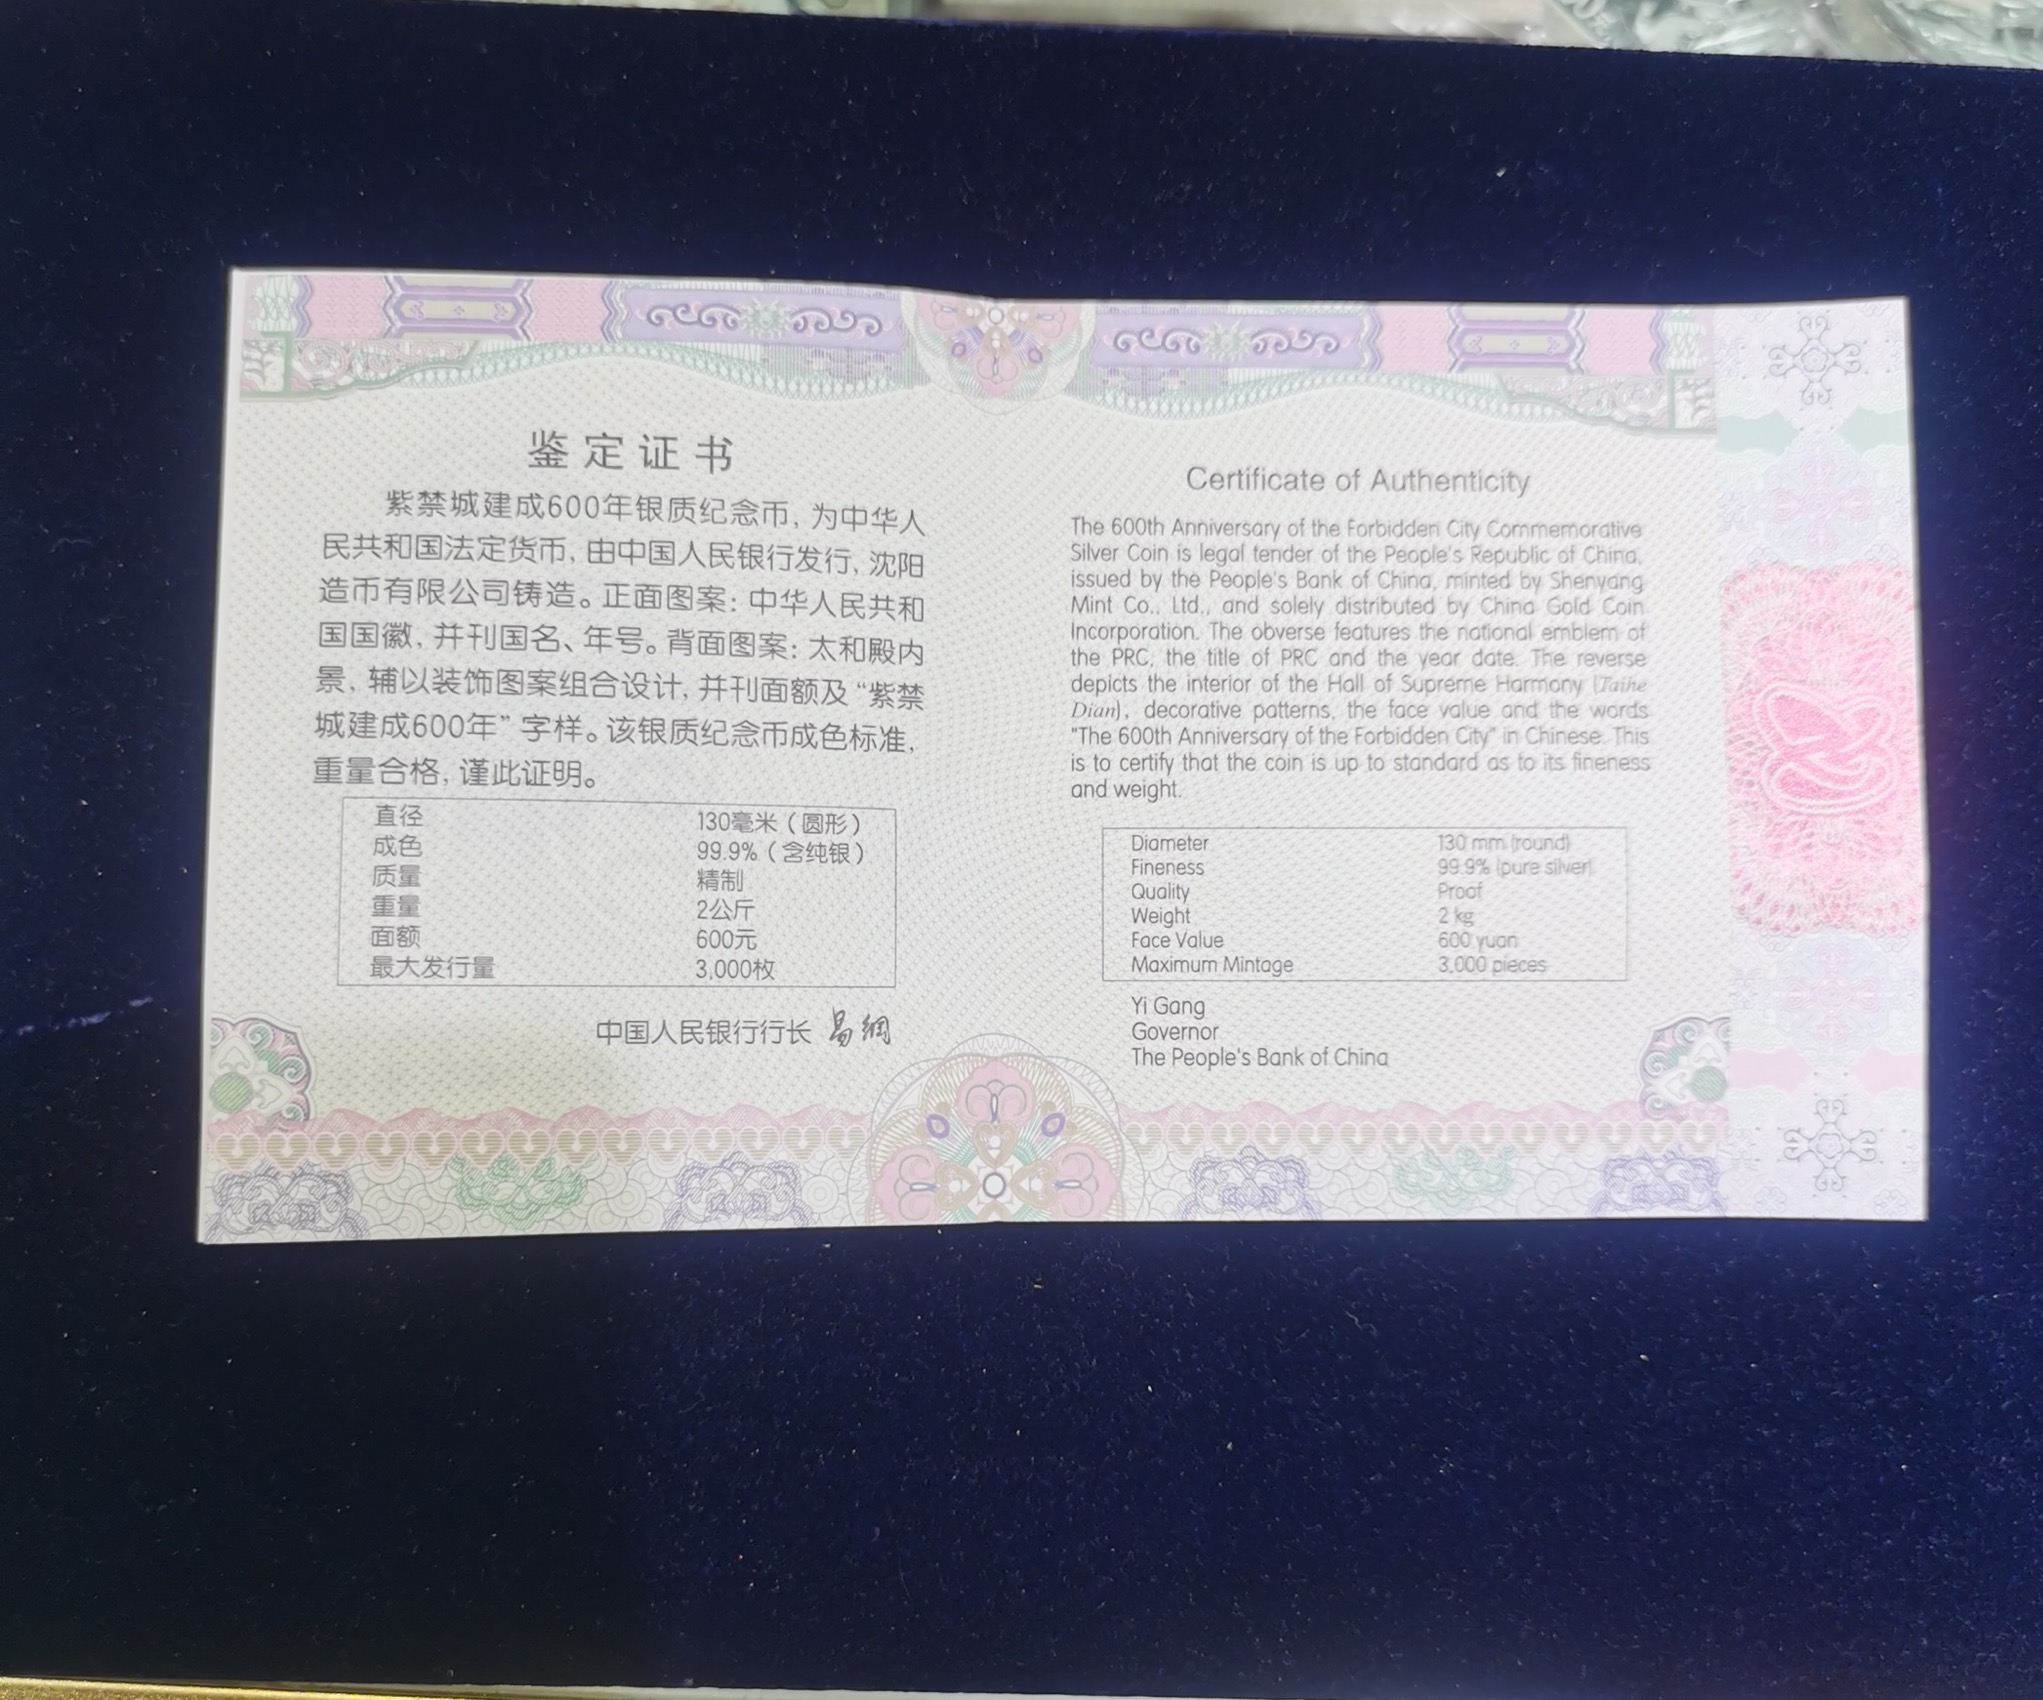 鉴定证书
紫禁城建成600年银质纪念币，为中华人
民共和国法定货币，由中国人民银行发行，沈阳
造币有限公司铸造。正面图案：中华人民共和
国国徽，并刊国名、年号。背面图案：太和殿内
景，辅以装饰图案组合设计，并刊面额及“紫禁
城建成600年”字样。该银质纪念币成色标准，
重量合格，谨此证明。
直径 130毫米（圆形）
成色 99.9%（含纯银）
质量 精制
重量 2公斤
面额 600元
最大发行量 3,000枚
中国人民银行行长 易纲
Certificate of Authenticity
The 600th Anniversary of the Forbidden City Commemorative
Silver Coin is legal tender of the People's Republic of China,
issued by the People's Bank of China, minted by Shenyang
Mint Co., Ltd., and solely distributed by China Gold Coin
Incorporation. The obverse features the national emblem of
the PRC, the title of PRC and the year date. The reverse
depicts the interior of the Hall of Supreme Harmony (Taihe
Dian), decorative patterns, the face value and the words
"The 600th Anniversary of the Forbidden City" in Chinese. This
is to certify that the coin is up to standard as to its fineness
and weight.
Diameter 130 mm (round)
Fineness 99.9% (pure silver)
Quality Proof
Weight 2 kg
Face Value 600 yuan
Maximum Mintage 3,000 pieces
Yi Gang
Governor
The People's Bank of China